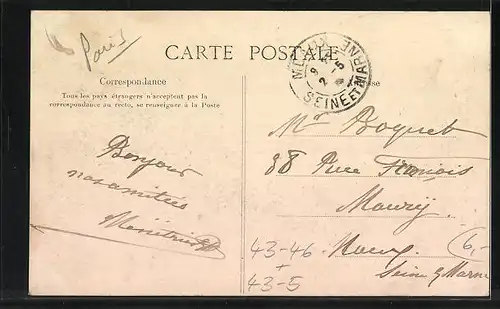 Paris
CARTE POSTALE
MEAUX
SEINE ET MARNE
Correspondance
Tous les pays étrangers n'acceptent pas la
correspondance au recto, se renseigner à la Poste
Bonjour
nos amitiés
Mr Boquet
38 Rue
43-46
+
43-5
Seine & Marne
6,-